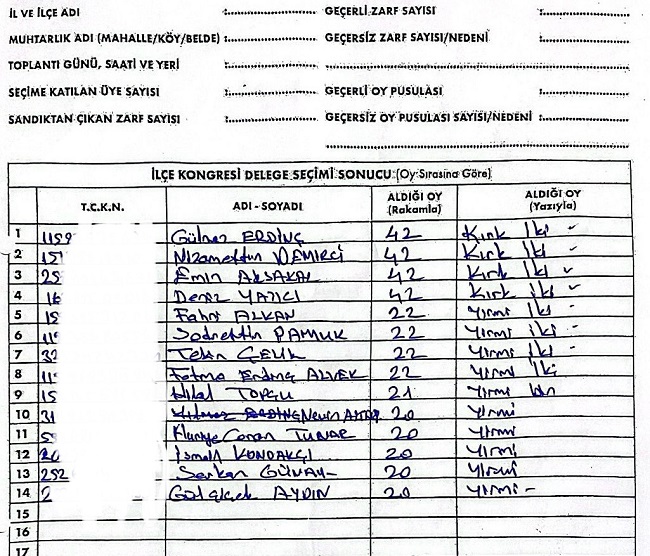 İL VE İLÇE ADI : GEÇERLİ ZARF SAYISI :
MUHTARLIK ADI (MAHALLE/KÖY/BELDE) : GEÇERSİZ ZARF SAYISI/NEDENİ :
TOPLANTI GÜNÜ, SAATİ VE YERİ :
SEÇİME KATILAN ÜYE SAYISI : GEÇERLİ OY PUSULASI :
SANDIKTAN ÇIKAN ZARF SAYISI : GEÇERSİZ OY PUSULASI SAYISI/NEDENİ :
İLÇE KONGRESİ DELEGE SEÇİMİ SONUCU (Oy Sırasına Göre)
T.C.K.N. ADI - SOYADI ALDIĞI OY (Rakamla) ALDIĞI OY (Yazıyla)
1 1159 Gülnaz ERDİNÇ 42 Kırk İki
2 15 Nizamettin DEMİRCİ 42 Kırk İki
3 25 Emin AKSAKAL 42 Kırk İki
4 16 Deniz YAZICI 42 Kırk İki
5 15 Fahri ALKAN 22 Yirmi İki
6 11 Sadrettin PAMUK 22 Yirmi İki
7 32 Tekin ÇELİK 22 Yirmi İki
8 11 Fatma Erdinç 22 Yirmi İki
9 15 Hilal TOPÇU 21 Yirmi bir
10 31 Nevin 20 Yirmi
11 5 TUNAR 20 Yirmi
12 20 İsmail KONDAKÇI 20 Yirmi
13 252 Serkan GÜNAY 20 Yirmi
14 2 Gülçiçek AYDIN 20 Yirmi -
15
16
17